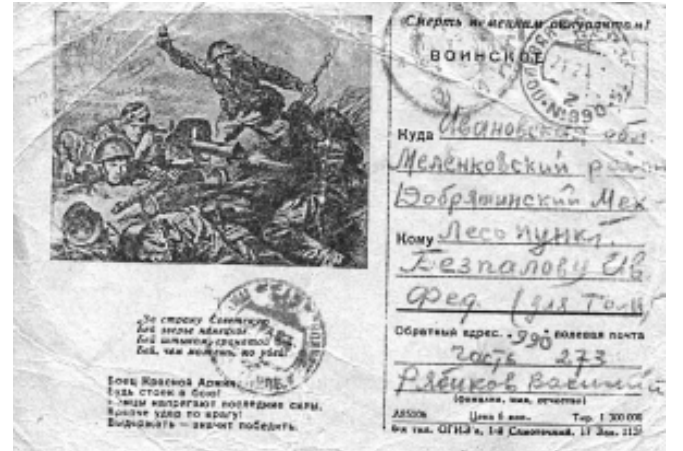 Смерть немецким оккупантам!
ВОИНСКОЕ
ПОЛЕВАЯ
№990
Куда Ивановская обл
Меленковский район
Добрятинский Мех-
Кому Лесопункт.
Безпалову Ив.
Фед. (для Толи)
Обратный адрес. 990 полевая почта
часть 273
Рябиков Василий
(фамилия, имя, отчество)
Цена 6 коп. Тир. 1 300 000
тип. ОГИЗ'а, 1-й
„За страну Советскую
Бей зверье
Бей штыком, гранатой бей,
Бей, чем можешь, но убей!"
Боец Красной Армии,
Будь стоек в бою!
Немцы напрягают последние силы.
удар по врагу!
Выдержать — значит победить.